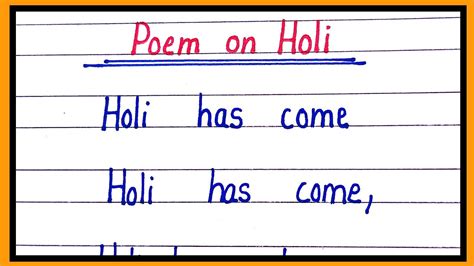 Poem on Holi
Holi has come
Holi has come,